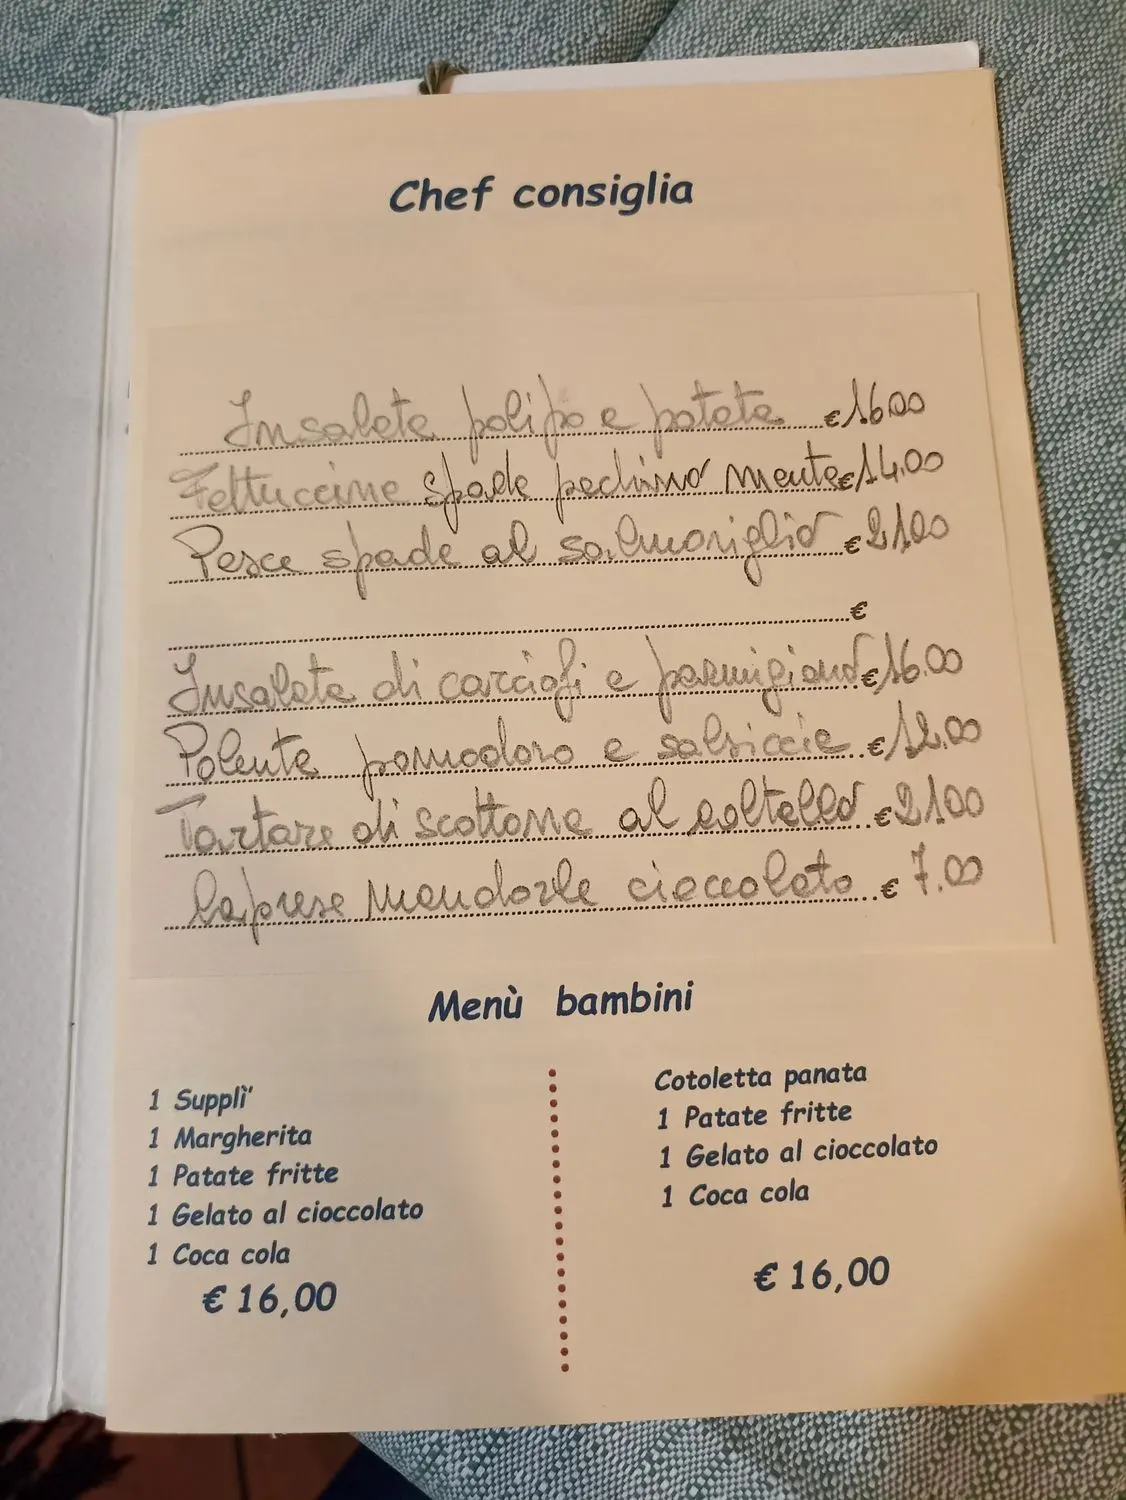 Chef consiglia
Insalata polipo e patate € 16.00
Fettuccine spada pachino menta € 14.00
Pesce spada al salmoriglio € 21.00
€
Insalata di carciofi e parmigiano € 16.00
Polenta pomodoro e salsiccia € 12.00
Tartare di scottona al coltello € 21.00
Caprese mandorle cioccolato € 7.00
Menù bambini
1 Supplì'
1 Margherita
1 Patate fritte
1 Gelato al cioccolato
1 Coca cola
€ 16,00
Cotoletta panata
1 Patate fritte
1 Gelato al cioccolato
1 Coca cola
€ 16,00